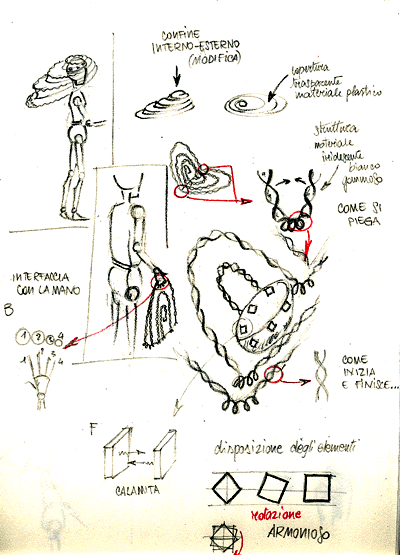 CONFINE
INTERNO-ESTERNO
(MODIFICA)
copertura
trasparente
materiale plastico
struttura
materiale
iridescente
bianco
gommoso
COME SI
PIEGA
INTERFACCIA
CON LA MANO
B
1 2 3 4
1 2 3 4
COME
INIZIA
E FINISCE...
F
CALAMITA
disposizione degli elementi
rotazione
ARMONIOSO